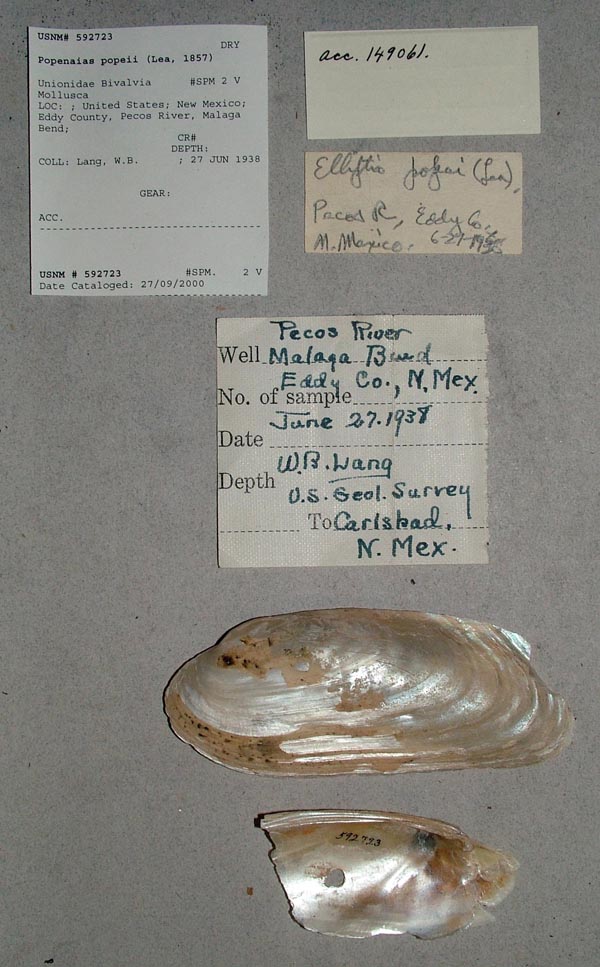 USNM# 592723
DRY
Popenaias popeii (Lea, 1857)
Unionidae Bivalvia #SPM 2 V
Mollusca
LOC: ; United States; New Mexico;
Eddy County, Pecos River, Malaga
Bend;
CR#
DEPTH:
COLL: Lang, W.B. ; 27 JUN 1938
GEAR:
ACC.
USNM # 592723 #SPM. 2 V
Date Cataloged: 27/09/2000
acc. 149061.
Elliptio popeii (Lea),
Pecos R, Eddy Co.
N. Mexico. 6-27-
Pecos River
Well Malaga Bend
Eddy Co., N. Mex.
No. of sample
June 27. 1938
Date
W.B. Lang
Depth
U.S. Geol. Survey
To Carlsbad,
N. Mex.
592723